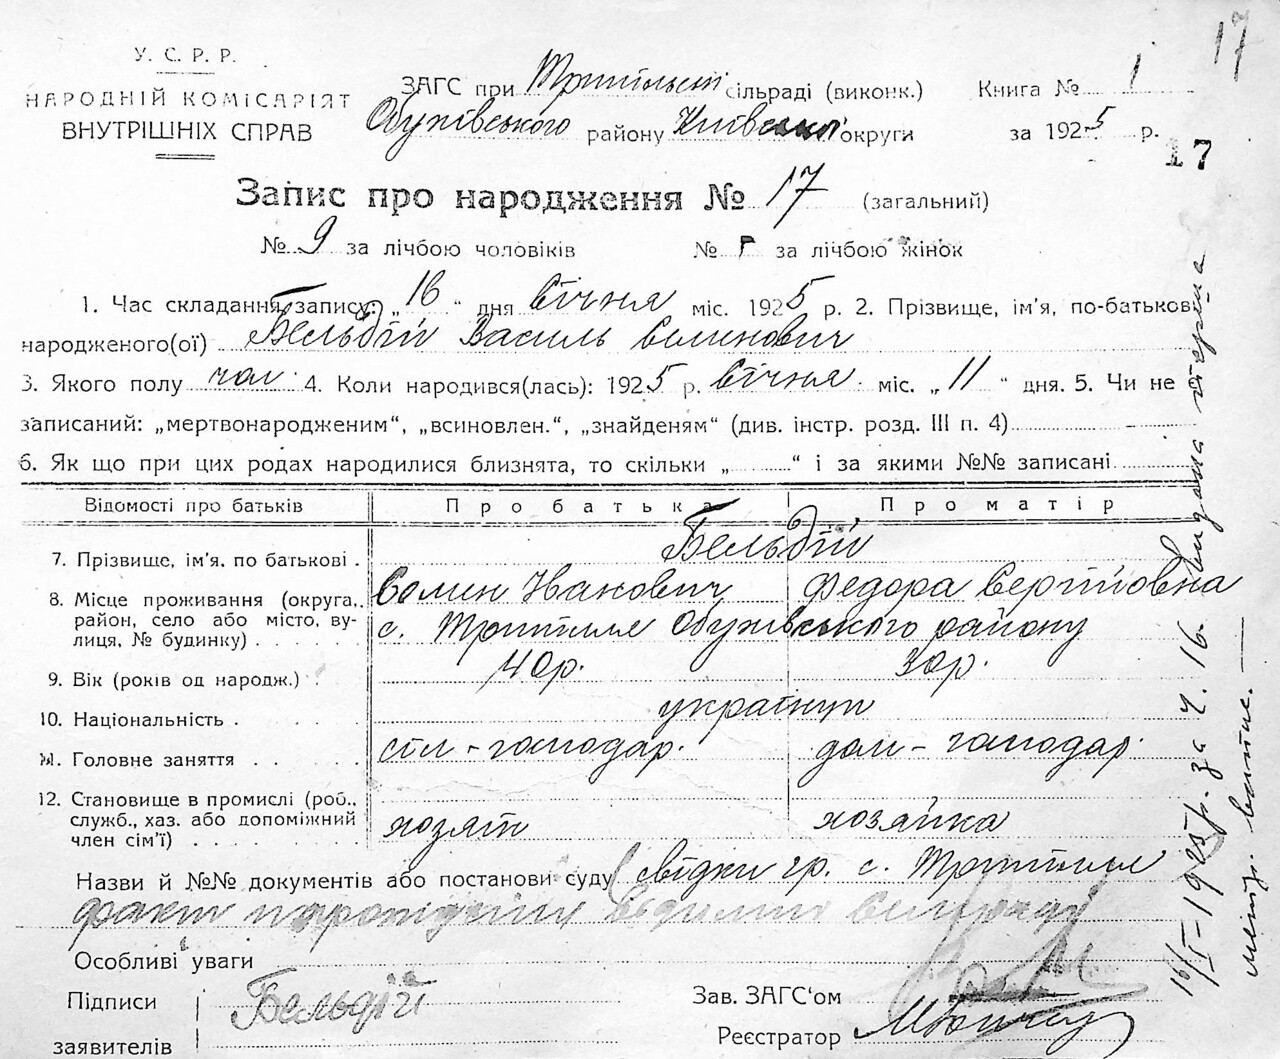 17
У. С. Р. Р.
НАРОДНІЙ КОМІСАРІЯТ
ВНУТРІШНІХ СПРАВ
ЗАГС при Трипільскій сільраді (виконк.) Книга № 1
Обухівського району Київської округи за 1925 р.
17
Запис про народження № 17 (загальний)
№ 9 за лічбою чоловіків № за лічбою жінок
1. Час складання запису: „16" дня Січня міс. 1925 р. 2. Прізвище, ім'я, по-батькові
народженого(ої) Бельдій Василь Семинович
3. Якого полу чол. 4. Коли народився(лась): 1925 р. Січня міс. „11" дня. 5. Чи не
записаний: „мертвонародженим", „всиновлен.", „знайденям" (див. інстр. розд. III п. 4)
6. Як що при цих родах народилися близнята, то скільки „ " і за якими №№ записані
Відомості про батьків Про батька Про матір
7. Прізвише, ім'я, по батькові . Бельдій
Семин Іванович Федора Сергіївна
8. Місце проживання (округа, район, село або місто, ву-
лиця, № будинку) с. Трипілля Обухівського району
9. Вік (років од народж.) 40р. 30р.
10. Національність українці
11. Головне заняття сіл-господар. дом-господар.
12. Становище в промислі (роб.,
служб., хаз. або допоміжний
член сім'ї) хозяїн хозяйка
Назви й №№ документів або постанови суду свідки гр. с. Трипілля
факт
Особливі уваги
Підписи
заявителів Бельдій
Зав. ЗАГС'ом
Реєстратор
16/I-1925р. за ч. 16. видана